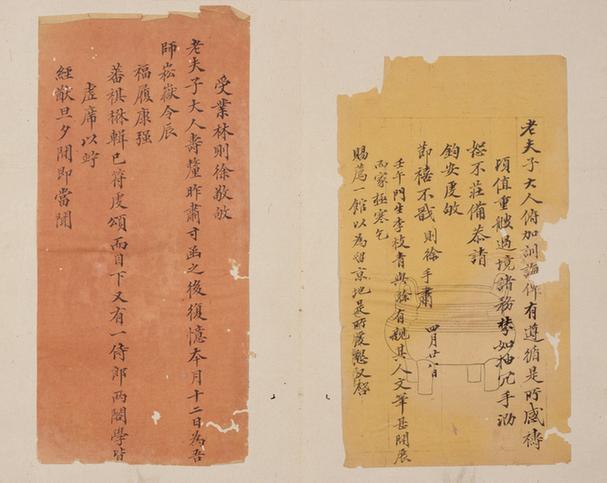 老夫子大人俯加訓誨俾有遵循是所感禱
頃值重艘過境諸務棼如抽冗手泐
恕不莊備恭請
鈞安虔敬
節禧不戩 則徐手肅 四月廿八日
壬午門生李枝青與徐有親其人文筆甚開展
而家極寒乞
賜薦一館以為留京地是所深懇又啓
受業林則徐敬敬
老夫子大人壽釐昨肅寸函之後復憶本月十二日為吾
師崧嶽令辰
福履康强
蕃祺楙輯已符虔頌而目下又有一侍郎兩閣學皆
虛席以竚
經猷旦夕間即當聞